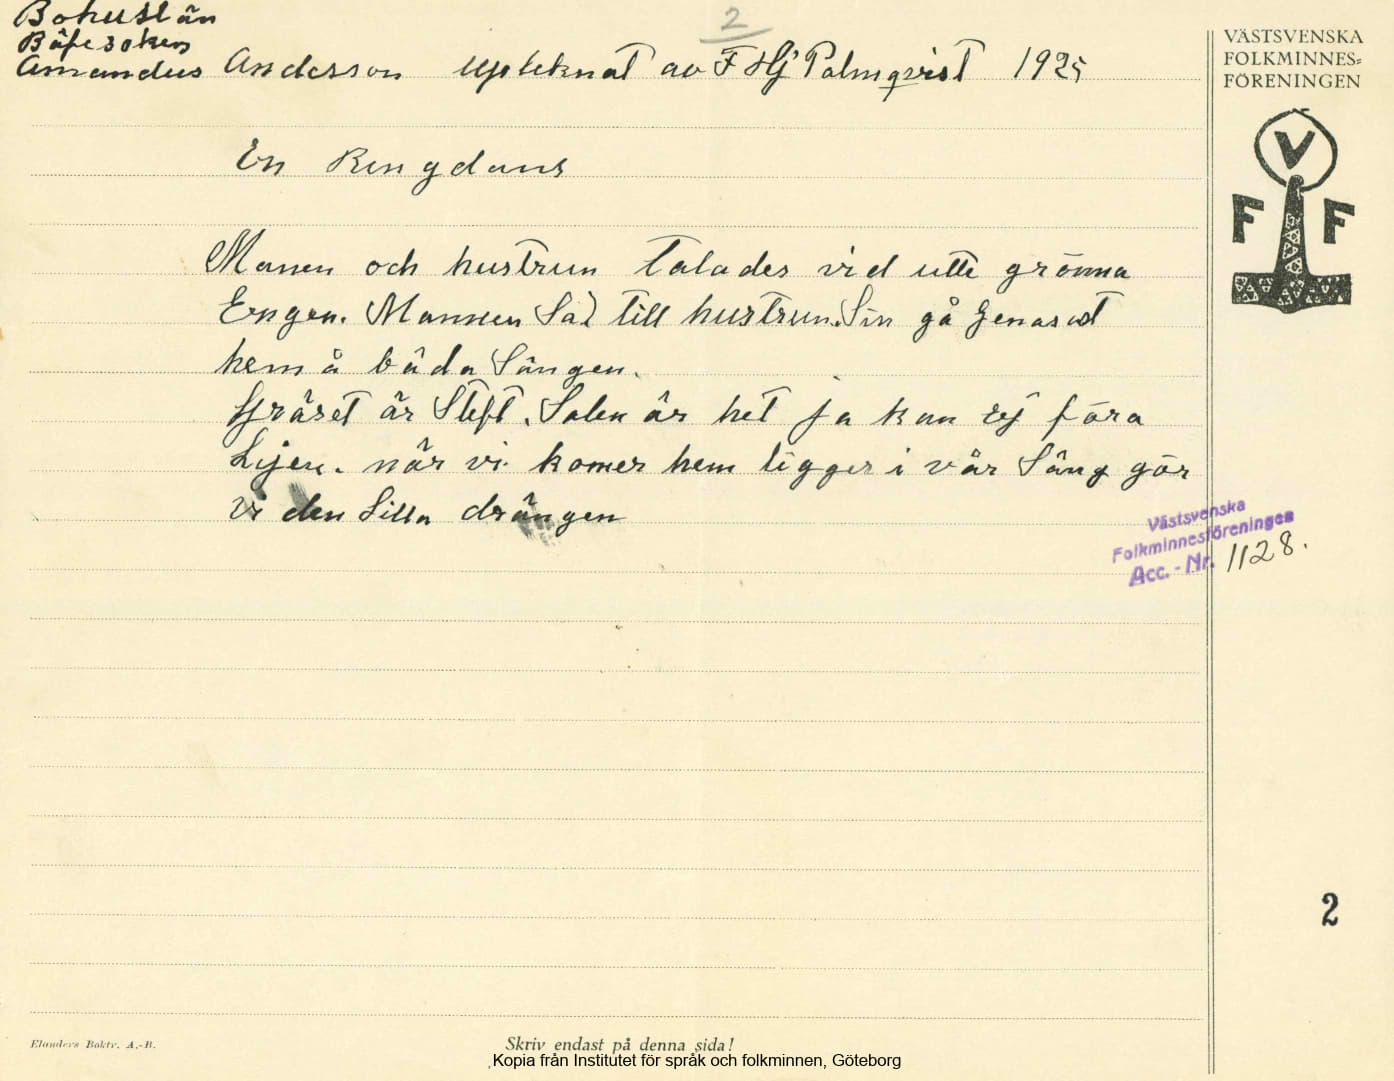 2
Bohuslän
Bäfe soken
Amandus Andersson Upteknat av F Hj Palmqvist 1925
VÄSTSVENSKA
FOLKMINNES=
FÖRENINGEN
V
F F
En Ringdans
Manen och hustrun talades vid utte grönna
Engen. Mannen Sa? till hustrun Sin gå Genast
hem å bäda Sängen.
Gräset är Slept. Solen är het ja kan ej föra
Lijen. när vi komer hem ligger i vår Säng gör
vi den Lilla drängen
Västsvenska
Folkminnesföreningen
Acc. - Nr. 1128.
2
Elanders Boktr. A.-B.
Skriv endast på denna sida!
Kopia från Institutet för språk och folkminnen, Göteborg